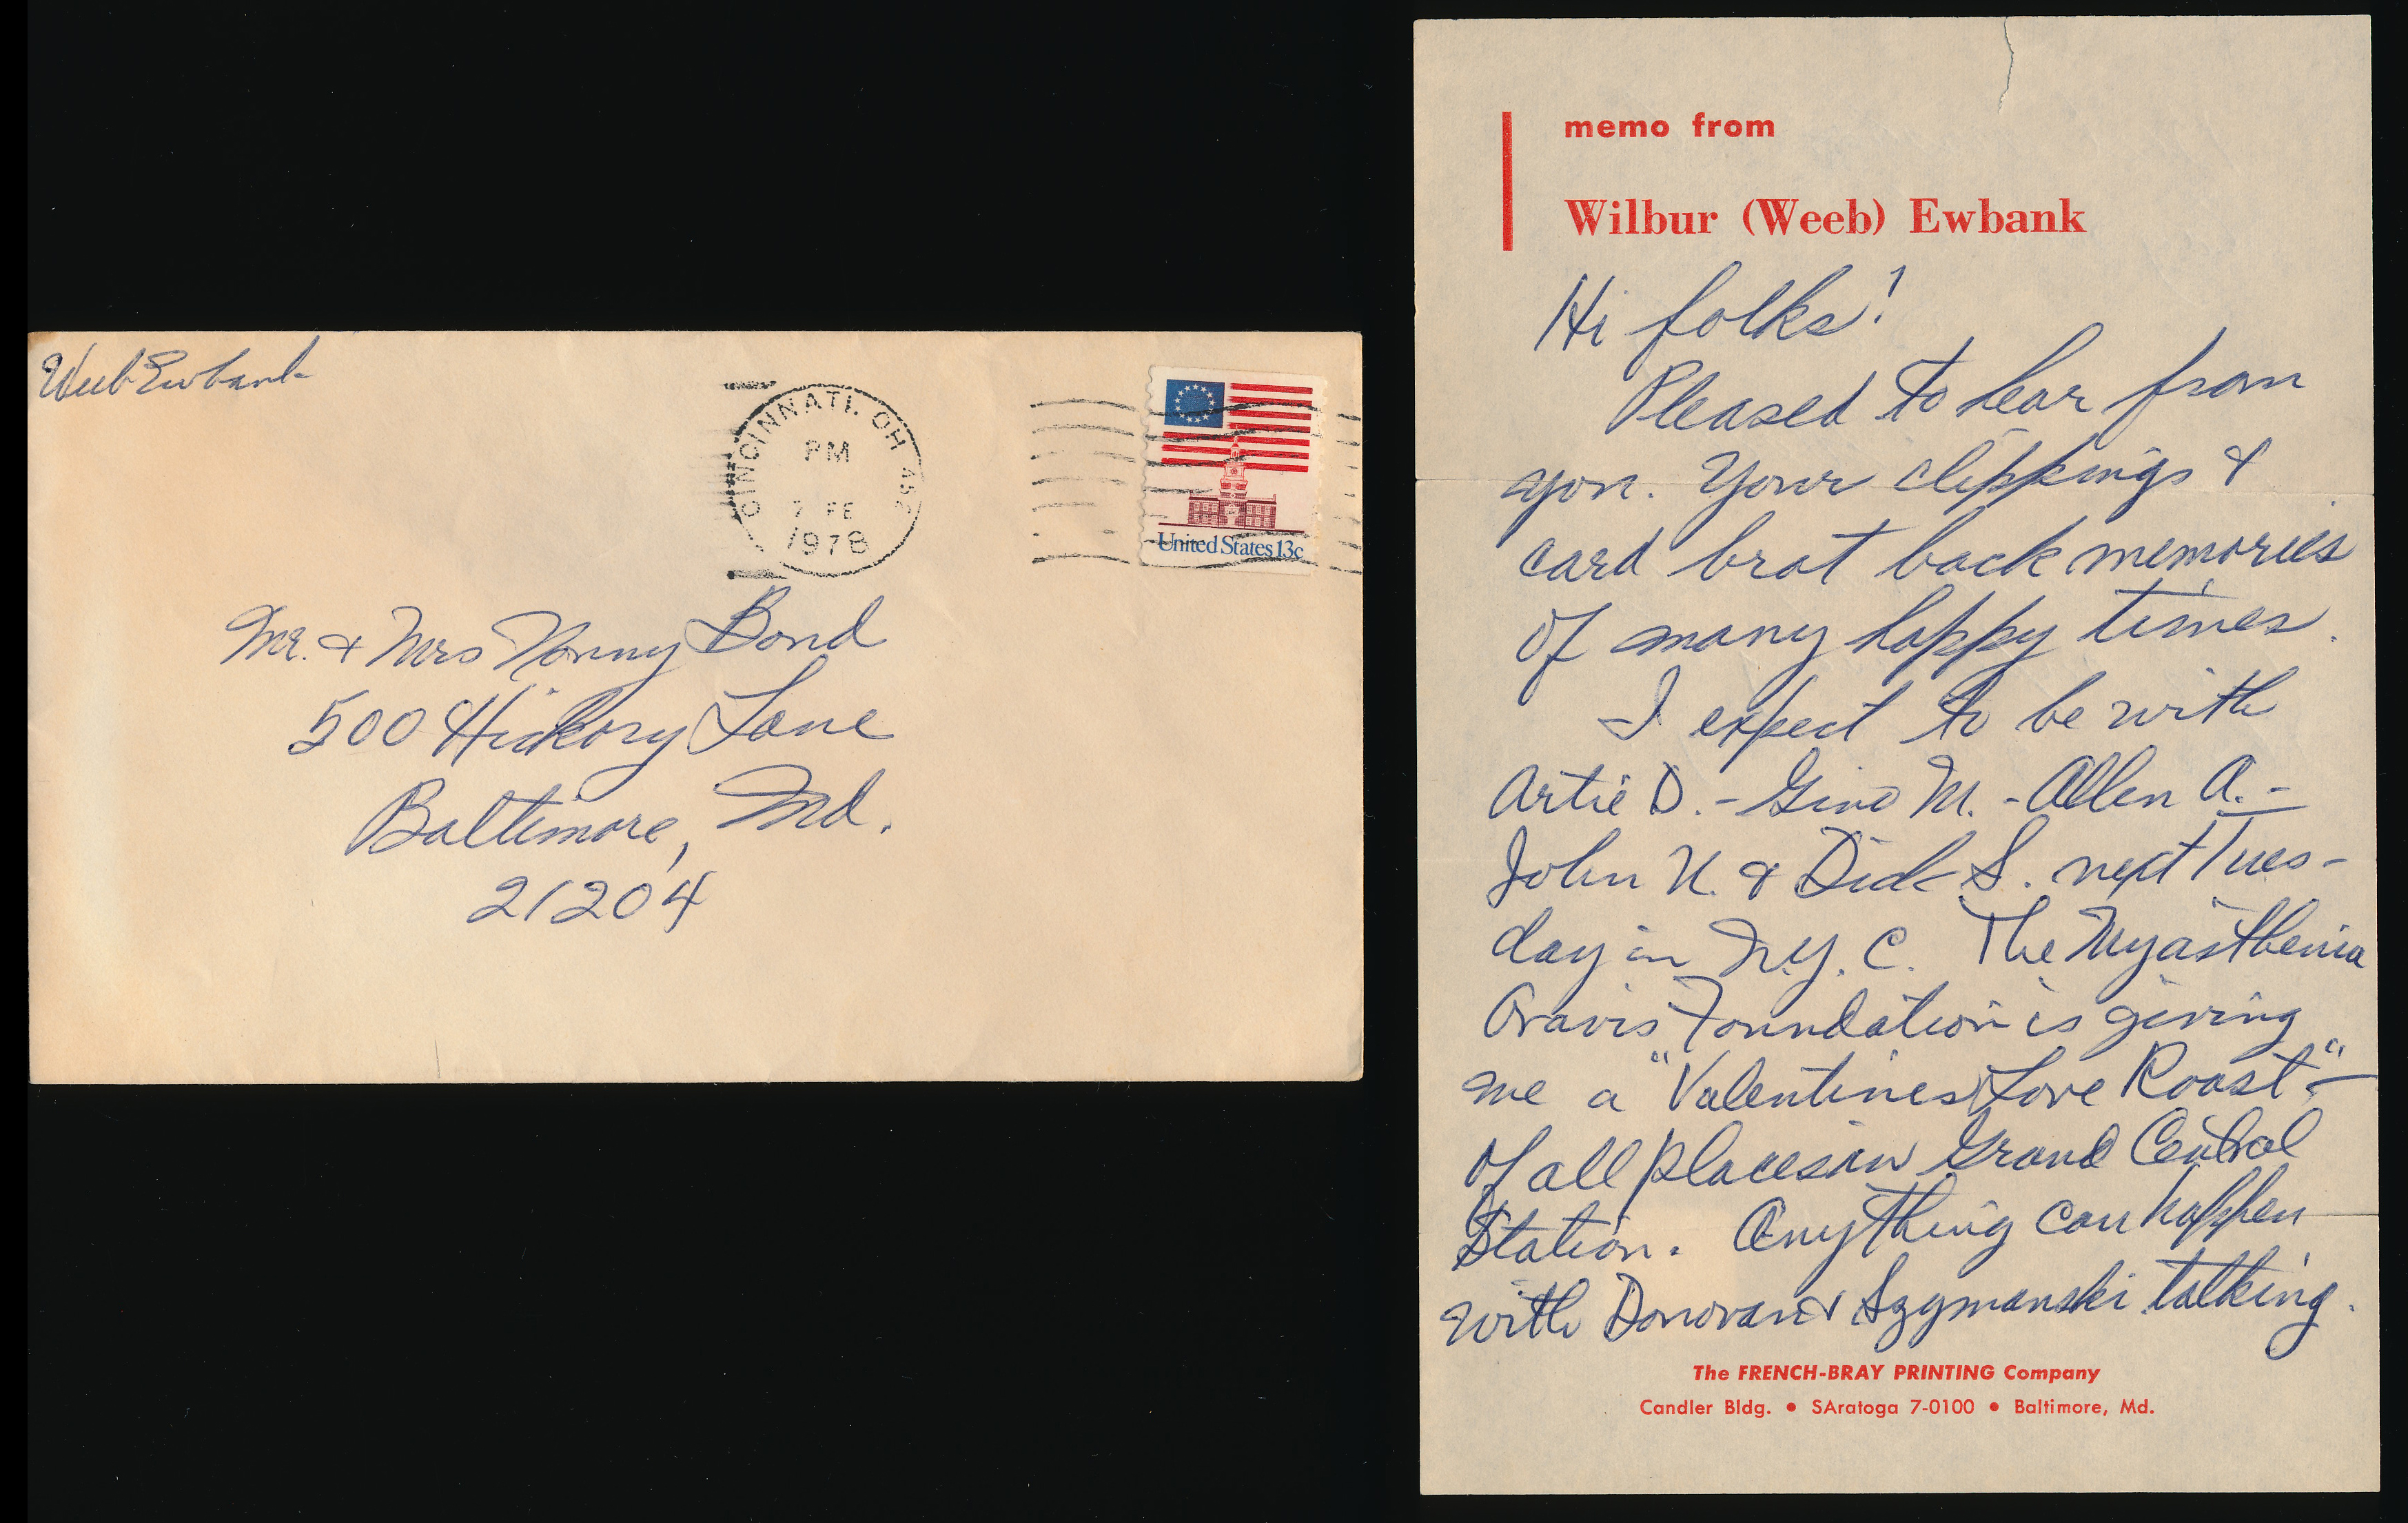 Weeb Ewbank
CINCINNATI, OH 452
PM
7 FE
1978
United States 13c
Mr. & Mrs Nonny Bond
500 Hickory Lane
Baltimore, Md.
21204
memo from
Wilbur (Weeb) Ewbank
Hi folks!
Pleased to hear from
you. Your clippings &
card brot back memories
of many happy times.
I expect to be with
Artie D. - Gino M. - Allen A. -
John U. & Dick S. next Tues-
day in N.Y. C. The Myasthenia
Gravis Foundation is giving
me a "Valentines Love Roast" -
of all places in Grand Central
Station. Anything can happen
with Donovan & Szymanski talking.
The FRENCH-BRAY PRINTING Company
Candler Bldg. • SAratoga 7-0100 • Baltimore, Md.